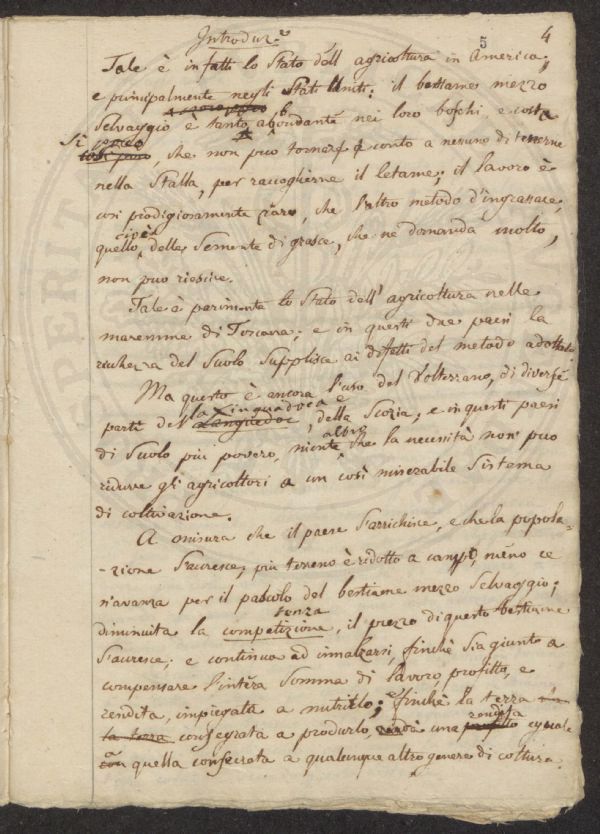 5 4
Introduz.e
Tale è infatti lo stato dell'agricoltura in America,
e principalmente negli Stati Uniti: il bestiame mezzo
Selvaggio è tanto abbondante nei loro boschi, e costa
Sì poco, che non può tornare conto a nessuno di tenerne
nella Stalla, per raccoglierne il letame; il lavoro è
così prodigiosamente caro, che l'altro metodo d'ingrassare,
cioè
quello, delle Semente di grasce, che ne domanda molto,
non può riescire.
Tale è parimente lo Stato dell'agricoltura nelle
maremme di Toscana; e in questi due paesi la
ricchezza del Suolo Supplisce ai difetti del metodo adottato
Ma questo è ancora l'uso del Volterrano, di diverse
la Linguadoca e
parti del Languedoc, della Scozia; e in questi paesi
altro
di Suolo più povero, niente che la necessità non può
ridurre gli agricoltori a un così miserabile Sistema
di coltivazione.
A misura che il paese S'arrichisce, e che la popola=
-zione S'accresce, più terreno è ridotto a campo, meno ce
n'avanza per il pascolo del bestiame mezzo Selvaggio;
diminuita la competizione, il prezzo di questo bestiame
S'accresce; e continua ad innalzarsi, finchè sia giunto a
compensare l'intera Somma di lavoro, profitto, e
rendita, impiegata a nutrirlo; finchè la terra
la terra consegrata a produrlo, una rendita eguale
a quella consecrata a qualunque altro genere di coltura.